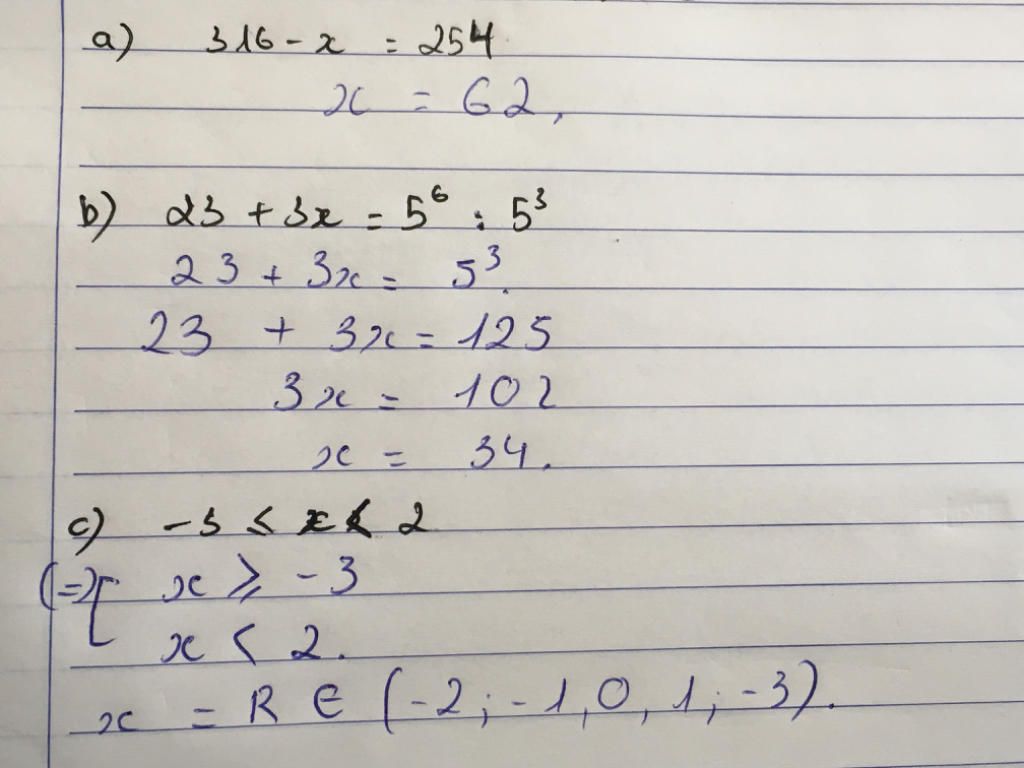 a) 316 - x = 254
x = 62,
b) 23 + 3x = 5⁶ : 5³
23 + 3x = 5³.
23 + 3x = 125
3x = 102
x = 34.
c) -3 ≤ x < 2
(=)[ x ⩾ -3
x < 2.
x = R ∈ (-2; -1, 0, 1; -3).